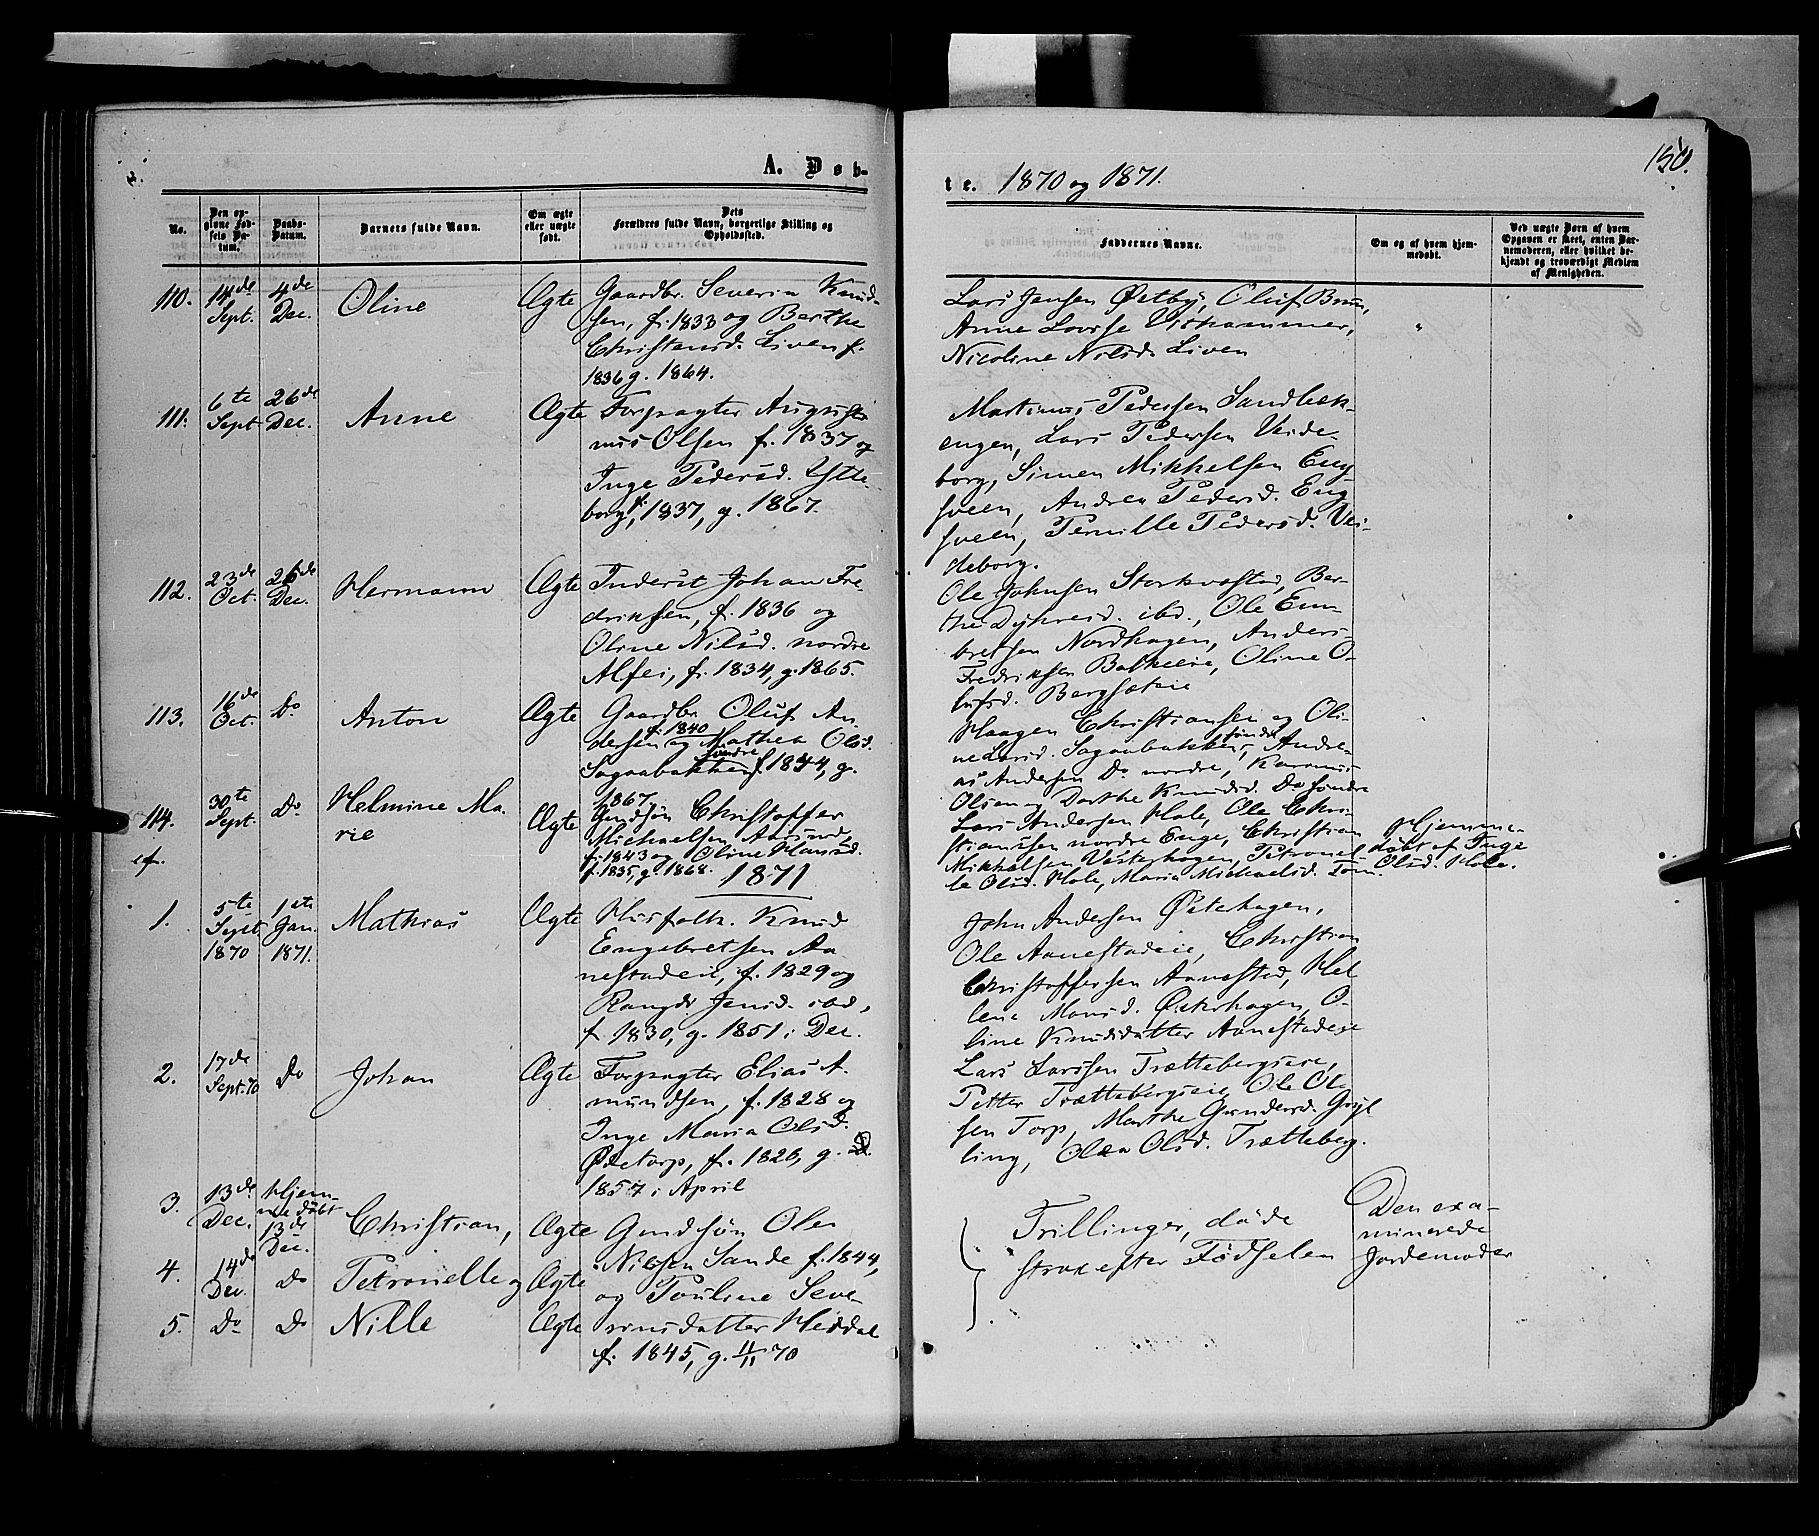 A. Døb-
te. 1870 og 1871.
150.
No.
Den op-
givne Fød-
sels Da-
tum.
Daabs-
Datum.
Barnets fulde Navn.
Om ægte
eller uægte
født.
Dets
Forældres fulde Navn, borgerlige Stilling og
Opholdssted.
Faddernes Navne.
Om og af hvem hjem-
medøbt.
Ved uægte Børn af hvem
Opgaven er skeet, enten Bar-
nemoderen, eller hvilket be-
kjendt og troværdigt Medlem
af Menigheden.
110. 14de Sept. 4de Dec. Oline Ægte
Gaardbr. Severin Knud-
sen, f. 1833 og Berthe
Christensd. Liven f.
1836 g. 1864.
Lars Jensen Østby, Oluf Bruu,
Anne Lovise
Nicoline Nilsd. Liven
111. 6te Sept. 26de Dec. Anne Ægte
Forpagter Augusti-
nus Olsen f. 1837 og
Inge Pedersd. Ytte-
borg, f. 1837, g. 1867.
Martinus Pedersen Sandbæk-
engen, Lars Pedersen Veide-
borg, Simen Mikkelsen Eng-
sveen, Andrea Pedersd. Eng
sveen, Pernille Pedersd. Vei-
deborg.
112. 23de Oct. 26de Dec. Hermann Ægte
Inderst Johan Fre-
driksen, f. 1836 og
Oline Nilsd. nordre
Alfei, f. 1834, g. 1865.
Ole Johnsen Storkvæstad, Ber-
the Dyhresd. ibd., Ole Em-
bretsen Nordhagen, Anders
Fredriksen Bakkeeie, Oline O-
lufsd. Bergsæteie
113. 16de Oct. Do Anton Ægte
Gaardbr. Oluf An-
dersen f. 1840 og Mathea Olsd.
Sogaabakken søndre f. 1844, g.
1867
Haagen Christiansen og Oli-
ne Larsd. Sagaabakken søndre, Andre-
as Andersen Do nordre, Rasmus
Olsen og Dorthe Knudsd. Do søndre
114. 30te Sept. Do Helmine Ma-
rie Ægte
Gmdsøn Christoffer
Michaelsen Aarlund,
f. 1843 og Oline Hansd.
f. 1835, g. 1868.
Lars Andersen Hole, Ole Chri-
stianssen nordre Enge, Christian
Mikkelsen Vesterhagen, Petronel-
le Olsd. Hole, Maria Michaelsd.
Hjemme-
døbt af Inge
Olsd. Hole.
1871
1. 5te Sept. 1870 1ste Jan. 1871. Mathias Ægte
Husfolk. Knud
Engebretsen Aa-
nestadeie, f. 1829 og
Rangdi Jensd. ibd,
f. 1830, g. 1851 i Dec.
John Andersen Østerhagen,
Ole Aanestadeie, Christian
Christoffersen Aanestad, Hel-
lene Monsd. Østerhagen, O-
line Knudsdatter Aanestadeie
2. 17de Sept. 70 Do Johan Ægte
Forpagter Elias A-
mundsen, f. 1828 og
Inge Maria Olsd.
Ødetorp, f. 1826, g.
1857 i April
Lars Larssen Trætteberg­seie,
Petter Trættebergseie, Ole Ol-
sen Torp, Marthe Gundersd. Gryl
ling, Olea Olsd. Trætteberg.
3. 13de Dec. Hjem-
me døbt
13de
Dec. Christian, Ægte
4. 14de Dec. Do Petronelle og Ægte
5. Do Do Nille Ægte
Gmdsøn Ole
Nilsen Sande f. 1844,
og Pauline Seve-
rinsdatter Heddal
f. 1845, g. 11/11 70
Trillinger, døde
strax efter Fødselen
Den exa-
minerede
Jordemoder